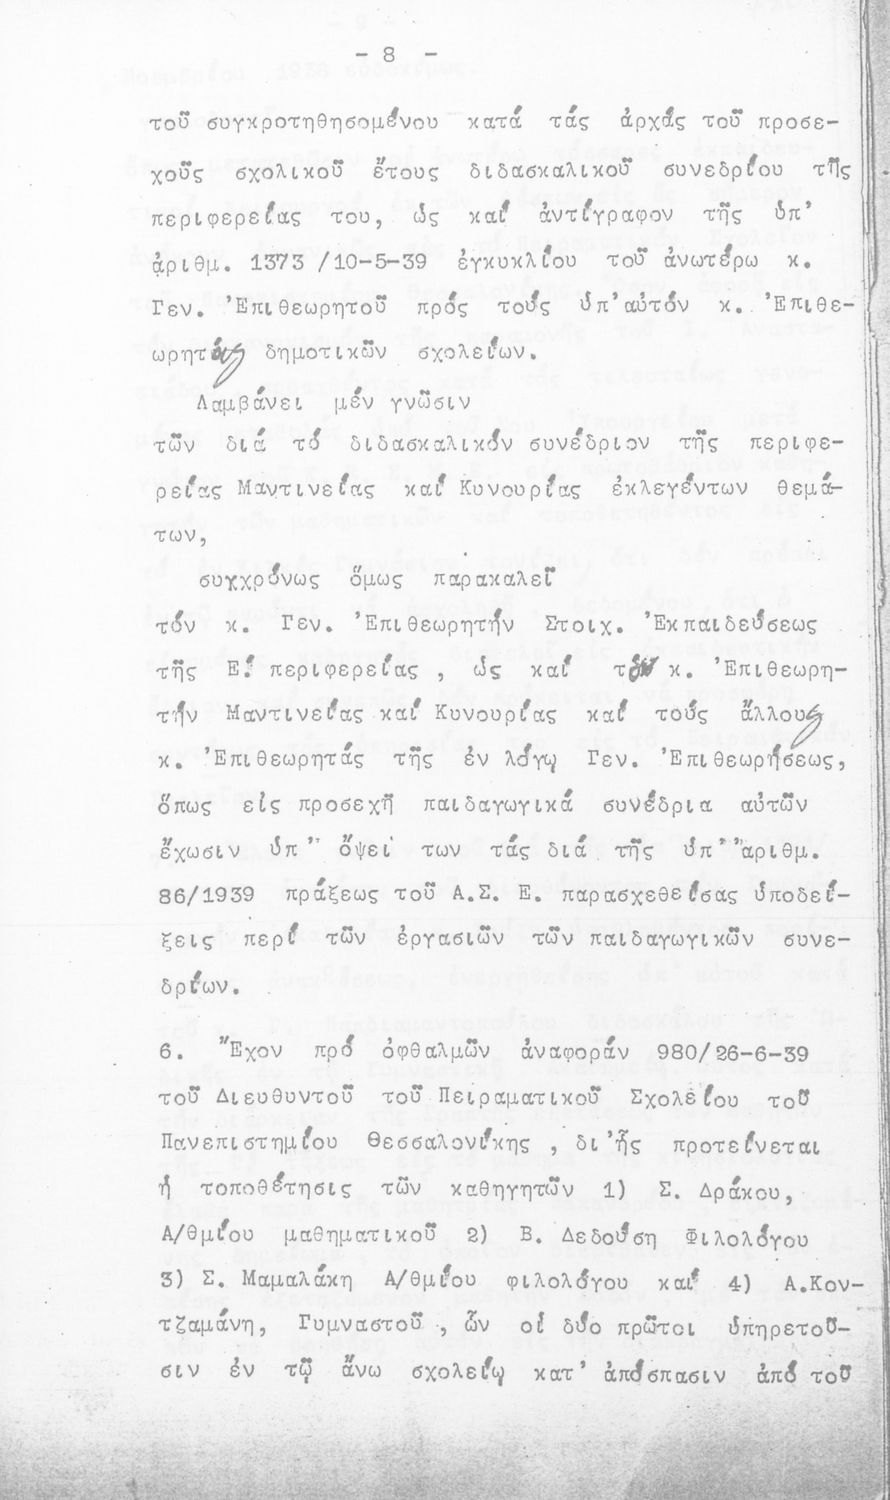 - 8 -
τοῦ συγκροτηθησομένου κατά τάς ἀρχάς τοῦ προσε-
χοῦς σχολικοῦ ἔτους διδασκαλικοῦ συνεδρίου τῆς
περιφερείας του, ὡς καί ἀντίγραφον τῆς ὑπ'
ἀριθμ. 1373/10-5-39 ἐγκυκλίου τοῦ ἀνωτέρω κ.
Γεν. Ἐπιθεωρητοῦ πρός τούς ὑπ'αὐτόν κ. Ἐπιθε-
ωρητάς δημοτικῶν σχολείων.
Λαμβάνει μέν γνῶσιν
τῶν διά τό διδασκαλικόν συνέδριον τῆς περιφε-
ρείας Μαντινείας καί Κυνουρίας ἐκλεγέντων θεμά-
των,
συγχρόνως ὅμως παρακαλεῖ
τόν κ. Γεν. Ἐπιθεωρητήν Στοιχ. Ἐκπαιδεύσεως
τῆς Ε! περιφερείας, ὡς καί τόν κ. Ἐπιθεωρη-
τήν Μαντινείας καί Κυνουρίας καί τούς ἄλλους
κ. Ἐπιθεωρητάς τῆς ἐν λόγῳ Γεν. Ἐπιθεωρήσεως,
ὅπως εἰς προσεχῆ παιδαγωγικά συνέδρια αὐτῶν
ἔχωσιν ὑπ' ὄψει των τάς διά τῆς ὑπ' ἀριθμ.
86/1939 πράξεως τοῦ Α.Σ. Ε. παρασχεθείσας ὑποδεί-
ξεις περί τῶν ἐργασιῶν τῶν παιδαγωγικῶν συνε-
δρίων.
6. Ἔχον πρό ὀφθαλμῶν ἀναφοράν 980/26-6-39
τοῦ Διευθυντοῦ τοῦ Πειραματικοῦ Σχολείου τοῦ
Πανεπιστημίου Θεσσαλονίκης, δι'ἧς προτείνεται
ἡ τοποθέτησις τῶν καθηγητῶν 1) Σ. Δράκου,
Α/θμίου μαθηματικοῦ 2) Β. Δεδούση Φιλολόγου
3) Σ. Μαμαλάκη Α/θμίου φιλολόγου καί 4) Α.Κον-
τζαμάνη, Γυμναστοῦ, ὧν οἱ δύο πρῶτοι ὑπηρετοῦ-
σιν ἐν τῷ ἄνω σχολείῳ κατ' ἀπόσπασιν ἀπό τοῦ